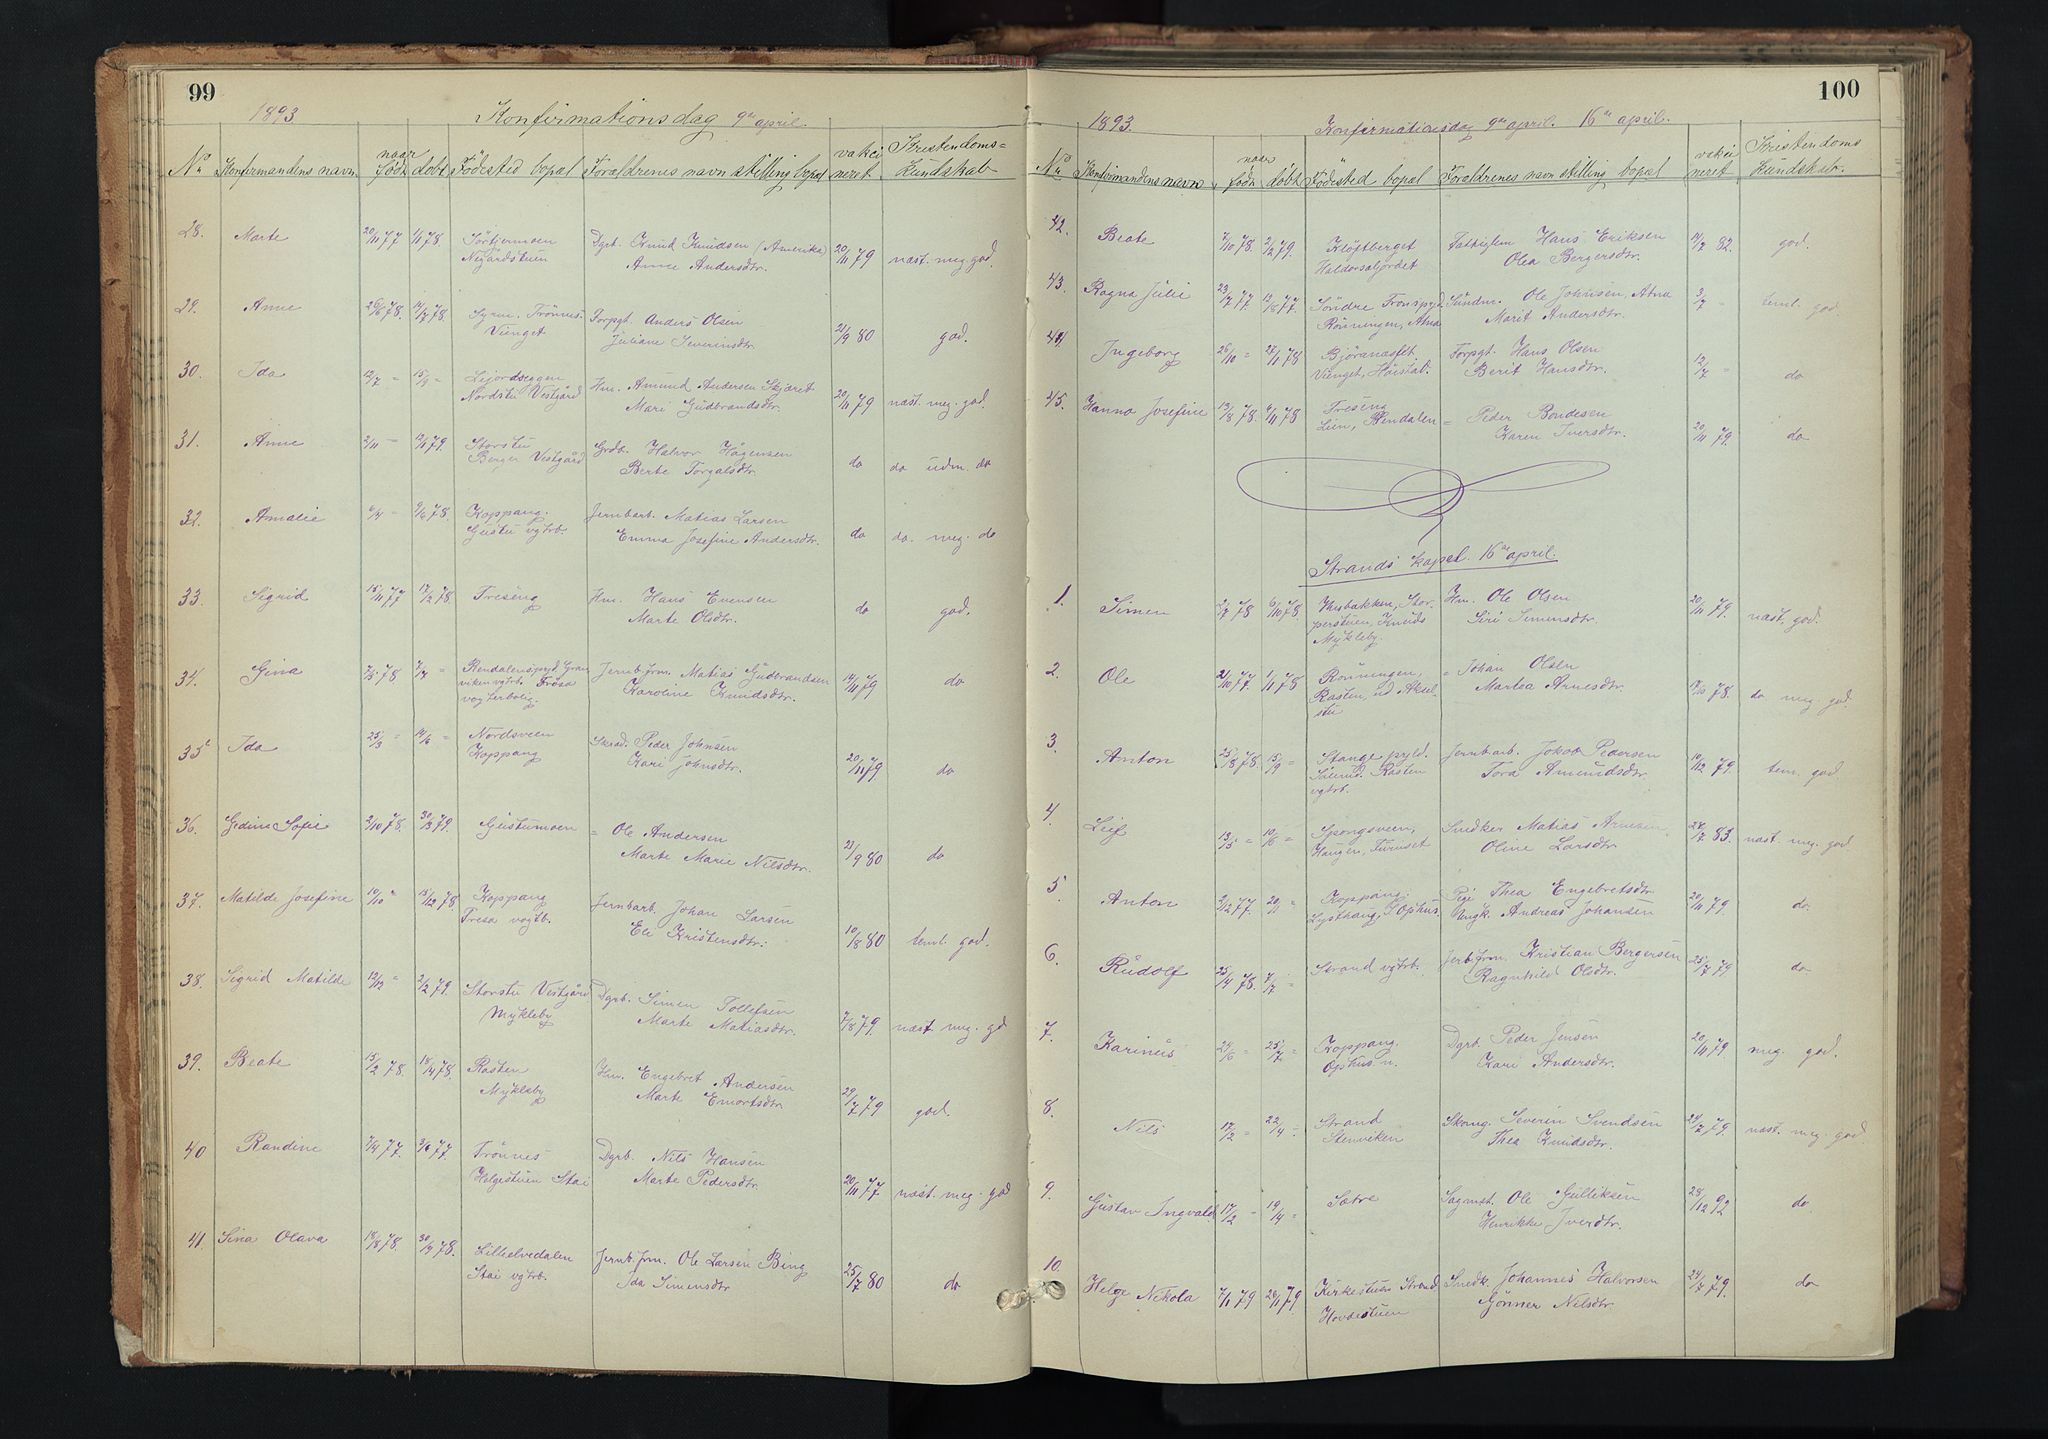 99
1893. Konfirmationsdag 9de april.
No Konfirmandens navn naar født døbt Fødested bopæl Forældrenes navn stilling bopæl vakci neret Kristendoms= kundskab
28. Marte 20/11 77 1/1 78. Nygårdstuen Dgrb. Knud Knudsen (Amerika) Anne Andersdtr. 20/11 79 næst. meg. god.
29. Anne 26/6 78. 14/7 78. Trønnes. Vienget Forpgt. Anders Olsen Juliane Severinsdtr. 21/9 80 god.
30. Ida 12/7 = 15/9 = Nordstu Vestgård Hm. Amund Andersen Skjæret Mari Gudbrandsdtr. 20/11 79 næst. meg. god.
31. Anne 2/11 — 12/1 79. Storstu Berger Vestgård Grdb. Halvor Hågensen Berte Torgalsdtr. do do udm. do
32. Amalie 6/4 — 9/6 78. Koppang. Gustu vgtrb. Jernbarb. Matias Larsen Emma Josefine Andersdtr. do do. meg. do
33. Sigrid 15/11 77 17/2 78. Treseng Hm. Hans Evensen Marte Olsdtr. do god.
34. Gina 7/5 78 7/7 = Rendalenspgd. Granviken vgtrb. Trøsa vogterbolig. Jernb.frm. Matias Gudbrandsen Karoline Knudsdtr. 14/11 79 do
35. Ida 25/3 = 14/6 = Nordsveen Koppang Skræd. Peder Johnsen Kari Johnsdtr. 20/11 79 do
36. Gedine Sofie 2/10 78. 30/3 79. Gustumoen = Ole Andersen Marte Marie Nilsdtr. 21/9 80 do
37. Matilde Josefine 10/10 " 15/12 78. Koppang Tresa vogtb. Jernbarb. Johan Larsen Eli Kristensdtr. 10/8 80 teml. god.
38. Sigrid Matilde 12/12 = 2/2 79. Storstu Vestgård Mykleby Dgrb. Simen Tollefsen Marte Matiasdtr. 7/8 79 næst meg. gd
39. Beate 15/2 78. 18/4 78. Rasten Mykleby Hm. Engebret Andersen Marte Emortsdtr. 29/7 79 god.
40 Randine 7/4 77. 3/6 77. Trønnes Helgestuen Stai Dgrb. Nils Hansen Marte Pedersdtr. 20/11 77 næst. meg. god
41. Sina Olava 18/8 78. 30/9 78. Lilleelvedalen Stai vgtrb. Jernb.frm. Ole Larsen Bing Ida Simensdtr 25/7 80 do
100
1893. Konfirmationsdag 9de april. 16de april.
No Konfirmandens navn. naar født døbt Fødested bopæl Forældrenes navn stilling bopæl vakci neret Kristendoms kundskab.
42. Beate 7/10 78. 2/2 79. Kløftberget Fattiglem Hans Eriksen Olea Bergersdtr. 82. god.
43. Ragna Julie 23/7 77. 77. Søndre Fronspgd. Rønningen, Atna Ole Johnsen, Atna Marit Andersdtr. 3/7 = teml. god.
44. Ingeborg 26/10 = 27/1 78 Bjøranæsset Vienget, Forpgt. Hans Olsen Berit Hansdtr. 12/7 = do
45. Hanna Josefine 13/8 78. 78 Treseng Lien, Rendalen = Peder Bendesen Karen Iversdtr. 20/11 79. do
Strands kapel. 16de april.
1. Simen 2/7 78 6/10 78. Storperstuen, Knuds Mykleby. Hm. Ole Olsen Siri Simensdtr. 20/11 79. næst. god.
2. Ole 2/10 77. 1/1 78 Rønningen, Rasten, ud Akselstu = Johan Olsen Martea Arnesdtr. 78. do meg. god.
3. Anton 25/8 78. 15/9 = Stange pgld. Rasten vgtrb. Jernbarb. Jakob Pedersen Tora Amundsdtr. 10/12 79. tem. god.
4. Leif 13/5 = 10/6 = Spongsveen, Haugen, Furuset Snedker Matias Arnesen Oline Larsdtr. 27/7 83. næst. meg. god.
5 Anton 9/12 77. 20/1 = Koppang. Lysthaug, Ophus. Pige Thea Engebretsdtr. Ungk. Andreas Johansen 20/11 79. do
6. Rudolf 25/4 78. 7/7 = Strand vgtrb. Jerb.frm. Kristian Bergersen Ragnhild Olsdtr. 25/7 79 do
7. Karinus 24/6 = 25/7 = Koppang. Ophus n. Dgrb. Peder Jensen Kari Andersdtr. 20/11 79. meg. god.
8. Nils 17/2 = 22/4 = Strand Stenviken Skomg. Severin Svendsen Thea Knudsdtr. 24/7 79. næst. meg. god
9. Gustav Ingvald 17/2 = 19/4 = Sætre Sagmst. Ole Gulliksen Henrikke Iverdtr. 28/12 92 do.
10. Helge Nikola 7/1 79 26/1 79 Kirkestuen Strand Hovdestuen Snedk. Johannes Halvorsen Gønner Nilsdtr. 24/7 79. do